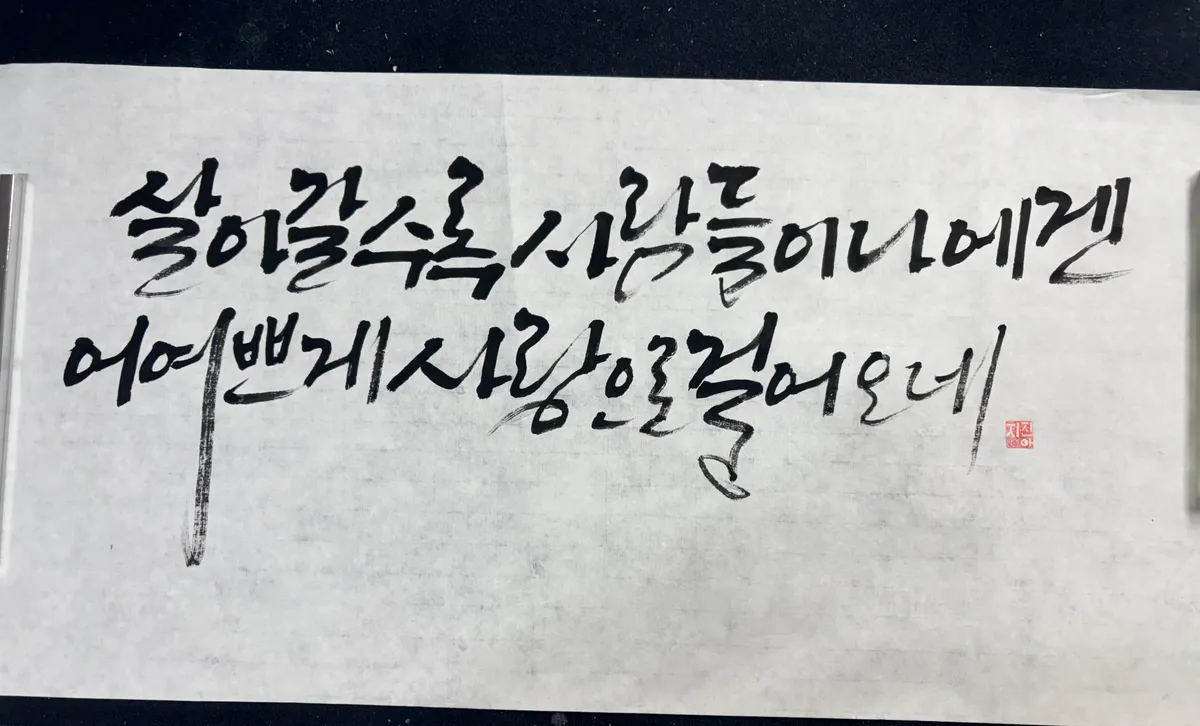 살아갈수록 사람들이 나에겐
어여쁘게 사랑으로 걸어오네